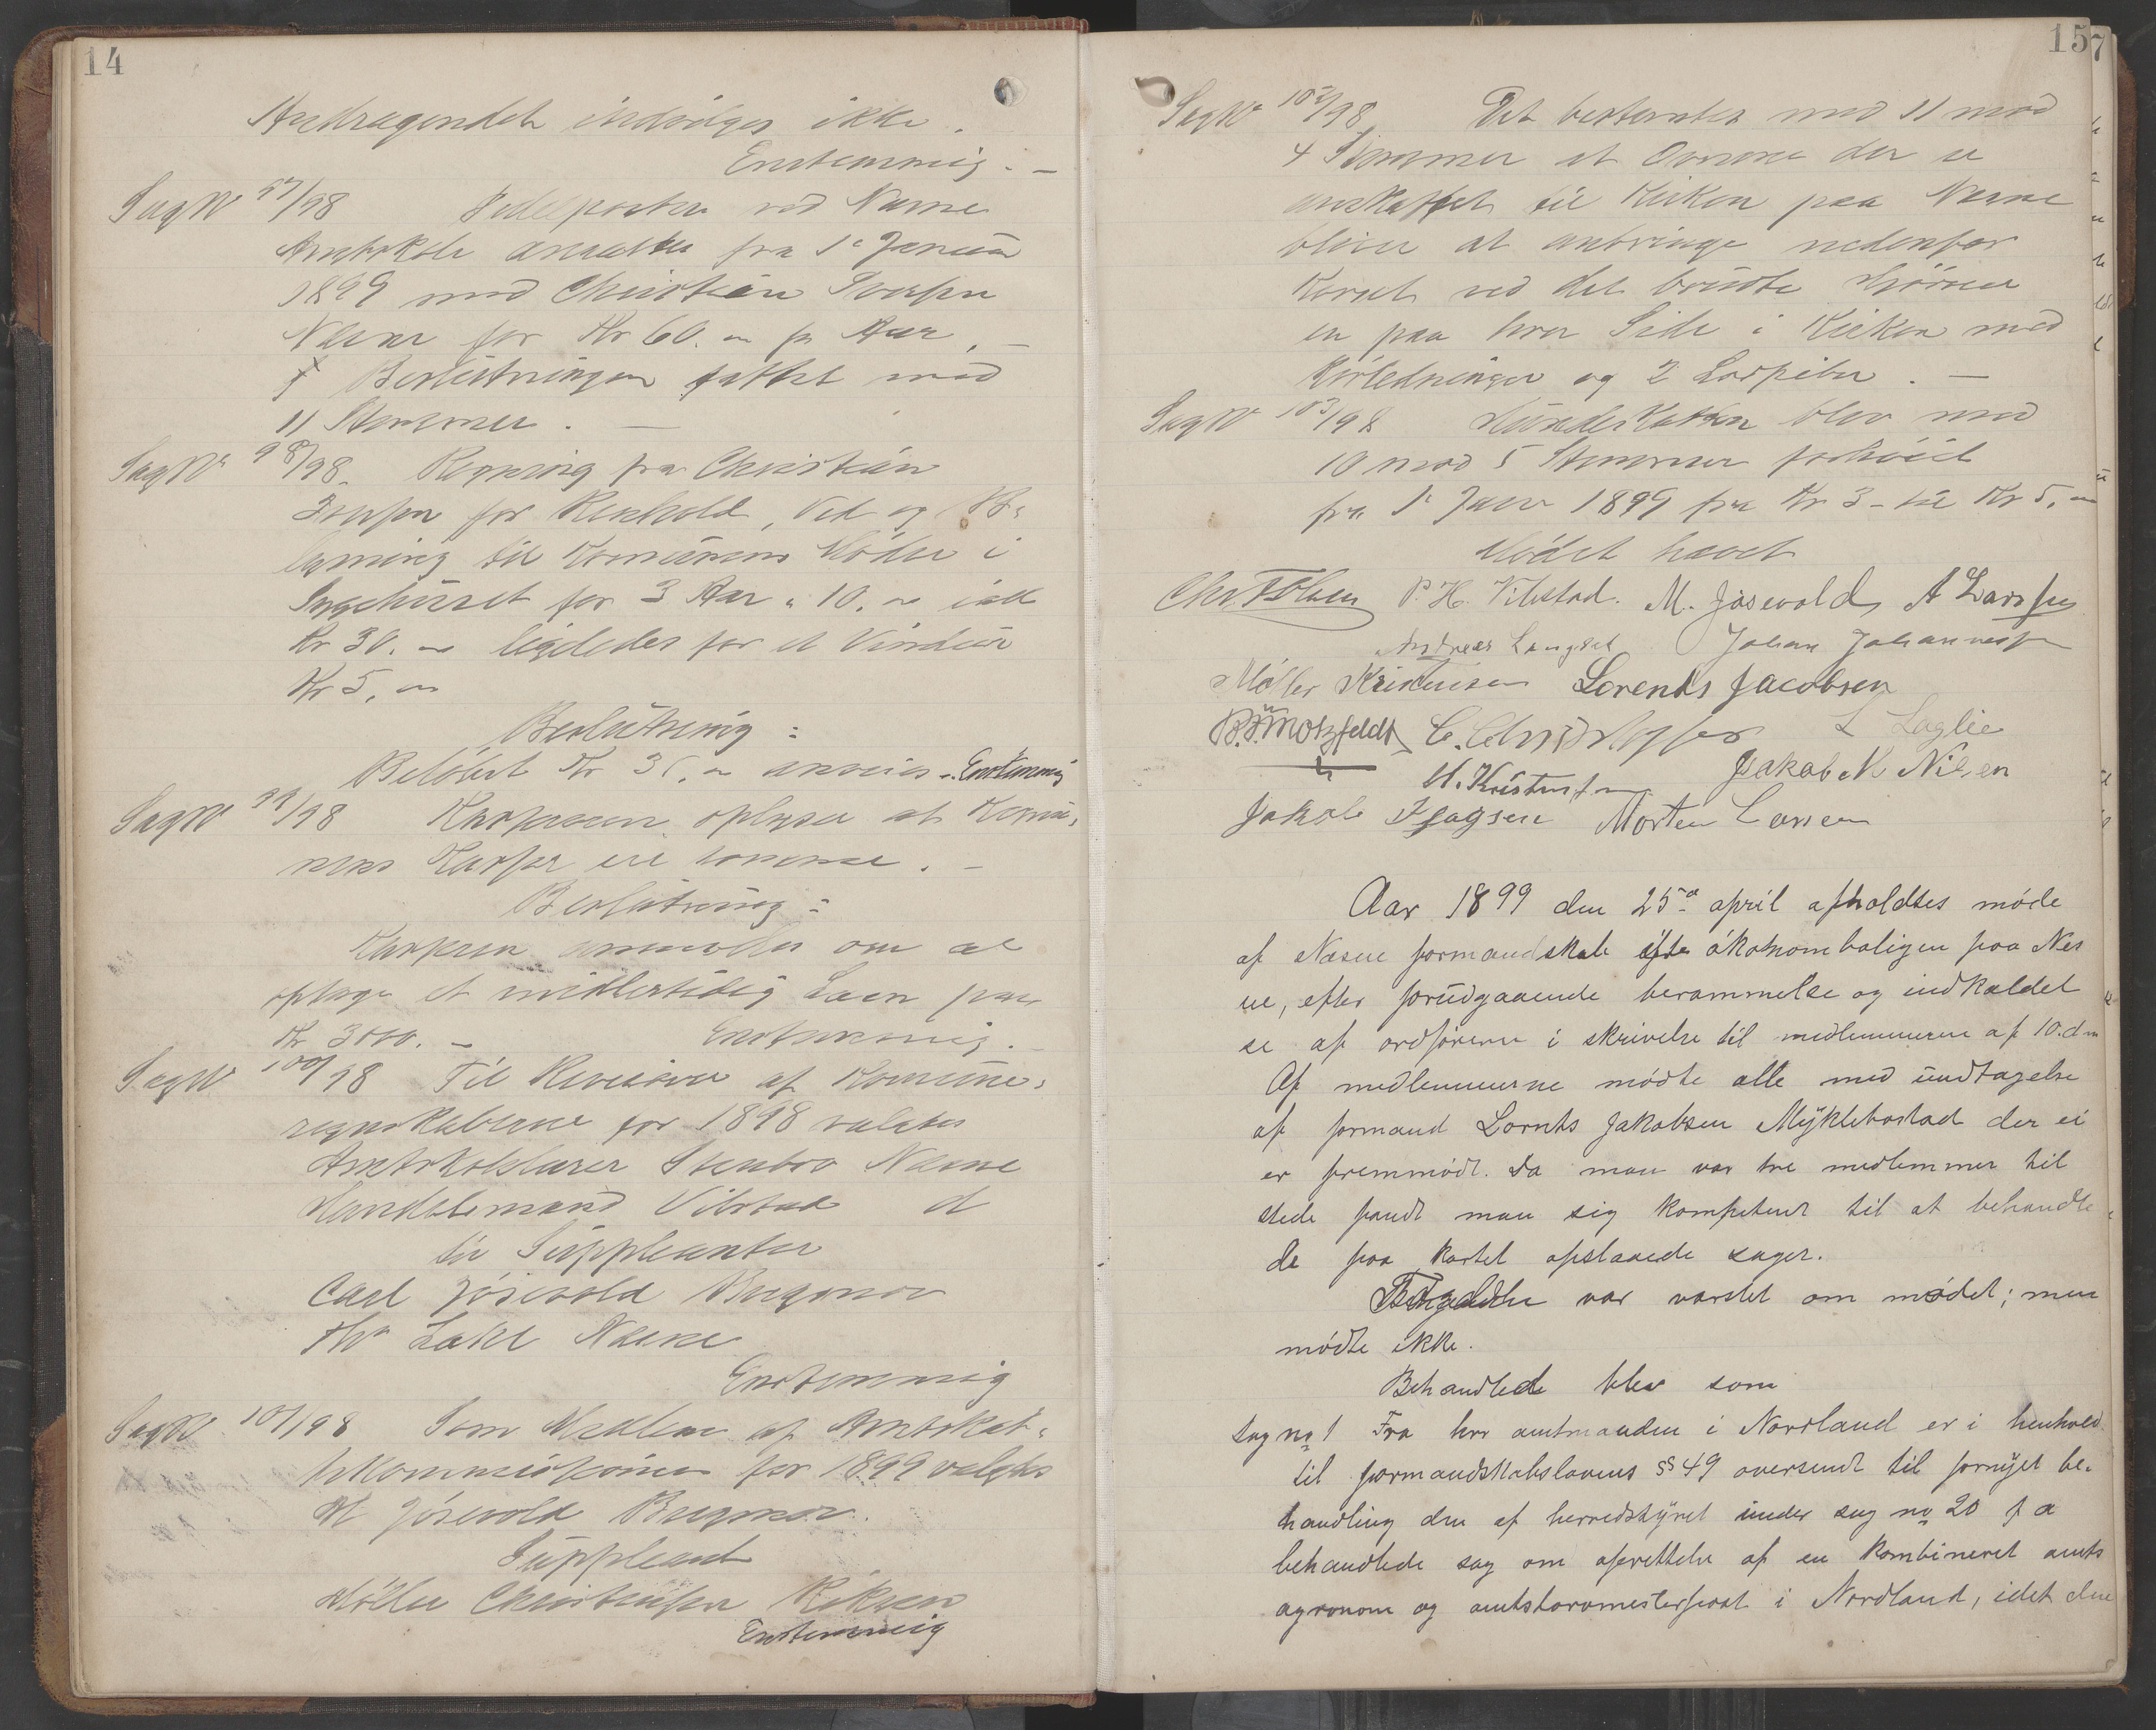 14
Andragendet indvilges ikke.
Enstemmig. —
Sag No 97/98 Pedelposten ved Næsne
Amtskole ansættes fra 1ste Januar
1899 med Christian
Næsne for Kr 60. pr Aar, —
Beslutningen fattet med
11 Stemmer. —
Sag No 98/98. Regning fra Christian
for Renhold, Ved og Be-
lysning til Komunens Møder i
for 3 Aar a 10. ialt
Kr 30. ligeledes for et Vindue
Kr 5.
Beslutning:
Beløbet Kr 35. anvises. Enstemmig
Sag No 99/98 Kassereren oplyser at Komu-
nens Kasser ere tomme. —
Beslutning:
Kassereren anmodes om at
optage et midlertidig Laan paa
Kr 3000. — Enstemmig.
Sag No 100/98 Til Revisorer af Komune-
regnskaberne for 1898 valgtes
Amtskolelærer Stenbro Næsne
Handelsmand Vibstad d
til Suppleanter
Carl Jøsevold Bregmov
Næsne
Enstemmig
Sag No 101/98 Som Medlem af Amtskat-
kommissionen for 1899 valgtes
M Jøsevold Bregmov.
Suppleant
Møller Christensen
Enstemmig
157
Sag No 102/98 Det bestemtes med 11 mod
4 Stemmer at Ovnene der er
anskaffet til Kirken paa Næsne
bliver at anbringe nedenfor
Korset ved det brudte Hjørne
en paa hver Side i Kirken med
Rørledninger og 2
Sag No 103/98 Hundeskatten blev med
10 mod 5 Stemmer forhøiet
fra 1ste Janr 1899 fra Kr 3 – til Kr 5.
Mødet hævet
P. H. Vibstad. M. Jøsevold A Larssen
Andreas Langset Johan Johannessen
Møller Kristensen Lorents Jacobsen
B. Motzfeldt L Laglie
H. Kristensen Jakob M Nilsen
Jakob Isagsen Morten Larsen
Aar 1899 den 25de april afholdtes møde
af Næsne formandskab økonomboligen paa Nes
ne, efter forudgaaende berammelse og indkaldel
se af ordføreren i skrivelse til medlemmerne af 10.dm
Af medlemmerne mødte alle med undtagelse
af formand Lornts Jakobsen Myklebostad der ei
er fremmødt. Da man var tre medlemmer til
stede fandt man sig kompetent til at behandle
de paa kartet opslaaede sager.
Fogden var varslet om mødet; men
mødte ikke.
Behandlede blev som
Sag no 1 Fra hrr amtmanden i Nordland er i henhold
til formandskabslovens §§ 49 oversendt til fornyet be-
handling den af herredstyret under sag no 20 f a
behandlede sag om oprettelse af en kombineret amts
agronom og amtshavemesterpost i Nordland, idet den